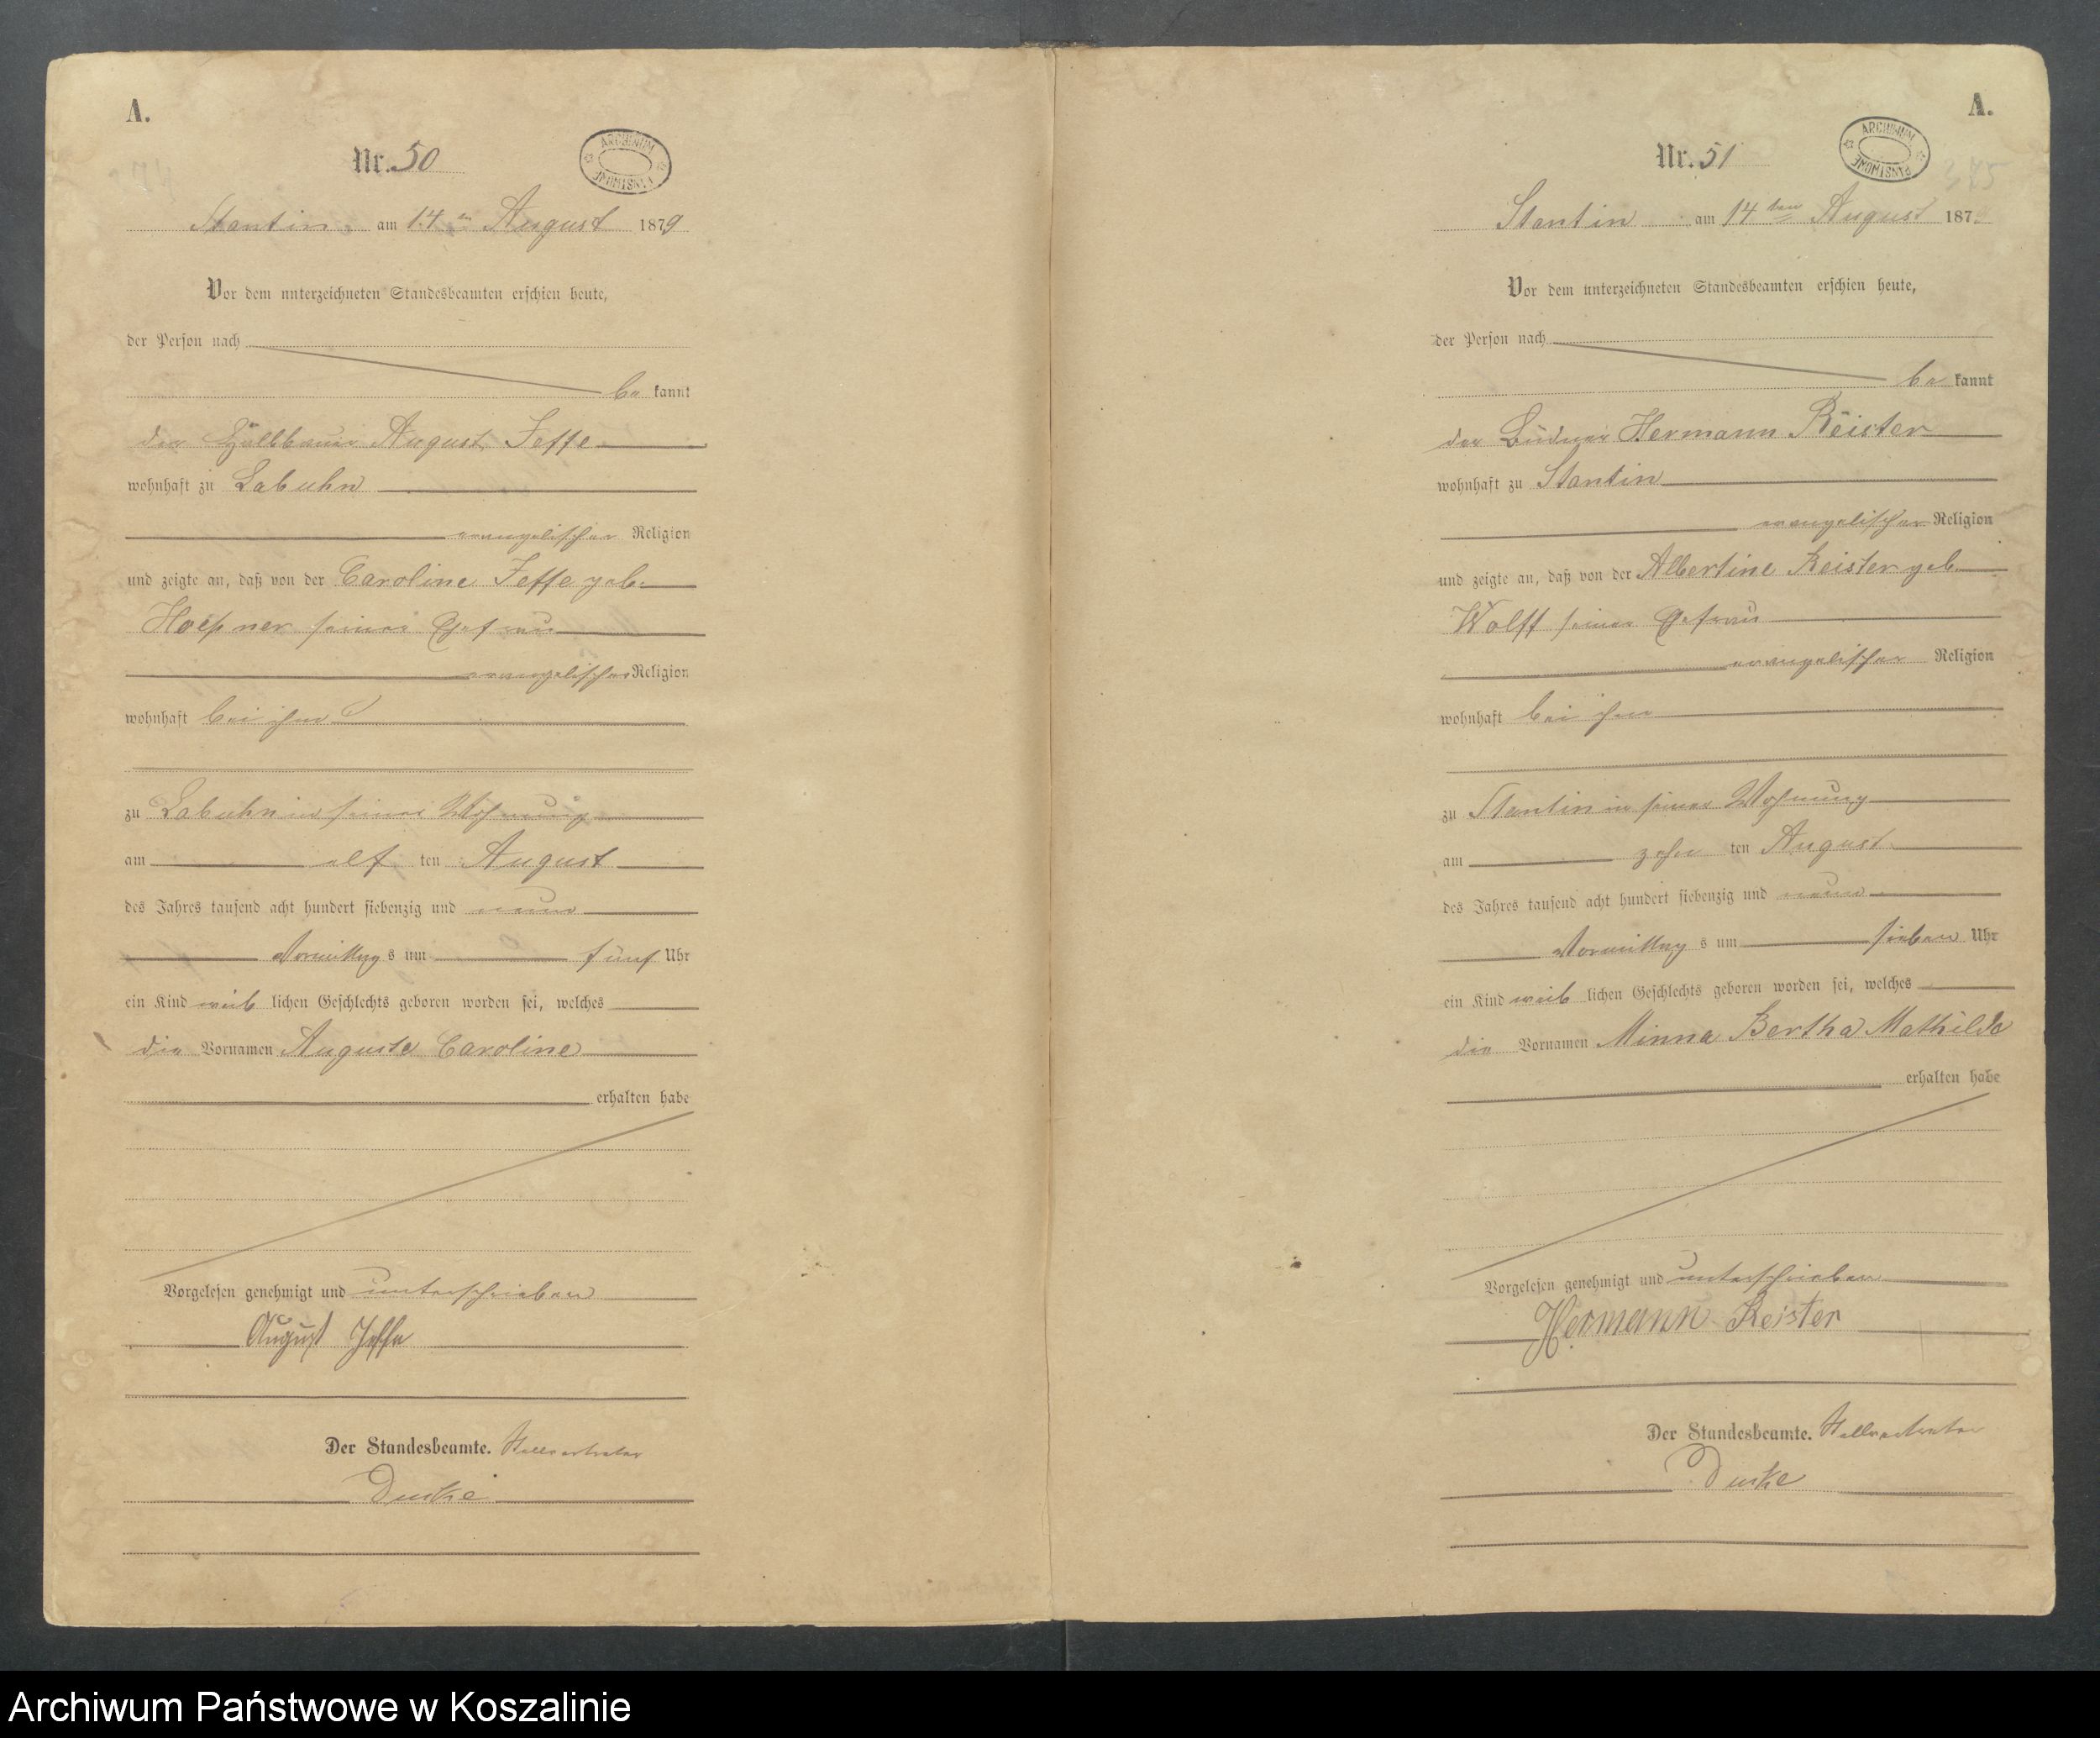 A.
Nr. 50
ARCHIWUM PAŃSTWOWE
Stantin am 14 ten August 1879
Vor dem unterzeichneten Standesbeamten erschien heute,
der Person nach
be kannt
der Halbbauer August Jeffe
wohnhaft zu Labuhn
evangelischer Religion
und zeigte an, daß von der Caroline Jeffe geb.
Hoepner seiner Ehefrau
evangelischer Religion
wohnhaft bei ihm
zu Labuhn in seiner Wohnung
am elf ten August
des Jahres tausend acht hundert siebenzig und neun
Vormittag s um fünf Uhr
ein Kind weib lichen Geschlechts geboren worden sei, welches
die Vornamen Auguste Caroline
erhalten habe
Vorgelesen genehmigt und unterschrieben
August Jeffe
Der Standesbeamte. Stellvertreter
A.
Nr. 51
ARCHIWUM PAŃSTWOWE
375
Stantin am 14 ten August 1879
Vor dem unterzeichneten Standesbeamten erschien heute,
der Person nach
be kannt
der Büdner Hermann Reister
wohnhaft zu Stantin
evangelischer Religion
und zeigte an, daß von der Albertine Reister geb.
Wolff seiner Ehefrau
evangelischer Religion
wohnhaft bei ihm
zu Stantin in seiner Wohnung
am zehn ten August
des Jahres tausend acht hundert siebenzig und neun
Vormittag s um sieben Uhr
ein Kind weib lichen Geschlechts geboren worden sei, welches
die Vornamen Minna Bertha Mathilde
erhalten habe
Vorgelesen genehmigt und unterschrieben
Hermann Reister
Der Standesbeamte. Stellvertreter
Archiwum Państwowe w Koszalinie